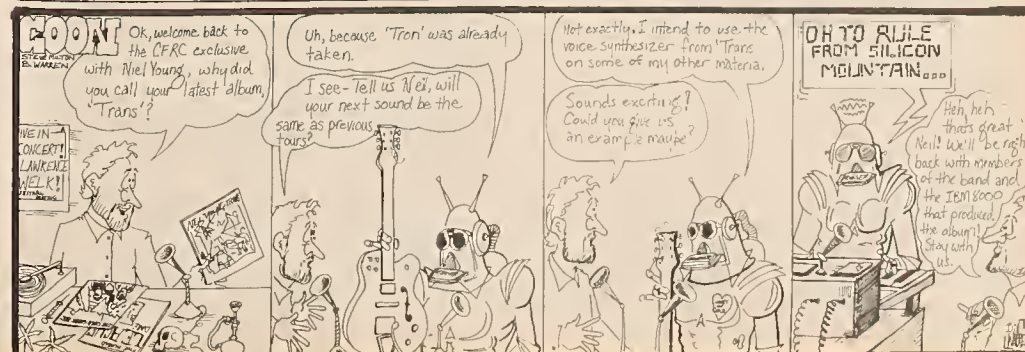 EOON
STEVE MILTON
B. WARREN
Ok, welcome back to
the CFRC exclusive
with Niel Young, why did
you call your latest album,
'Trans'?
LIVE IN
CONCERT!
LAWRENCE
WELK!
Uh, because 'Tron' was already
taken.
I see - Tell us Neil, will
your next sound be the
same as previous
tours?
Not exactly, I intend to use the
voice synthesizer from 'Trans
on some of my other materia.
Sounds exciting?
Could you give us
an example maybe?
OH TO RULE
FROM SILICON
MOUNTAIN...
Heh, heh
thats great
Neil! We'll be right
back with members
of the band and
the IBM 8000
that produced
the album!
Stay with
us.